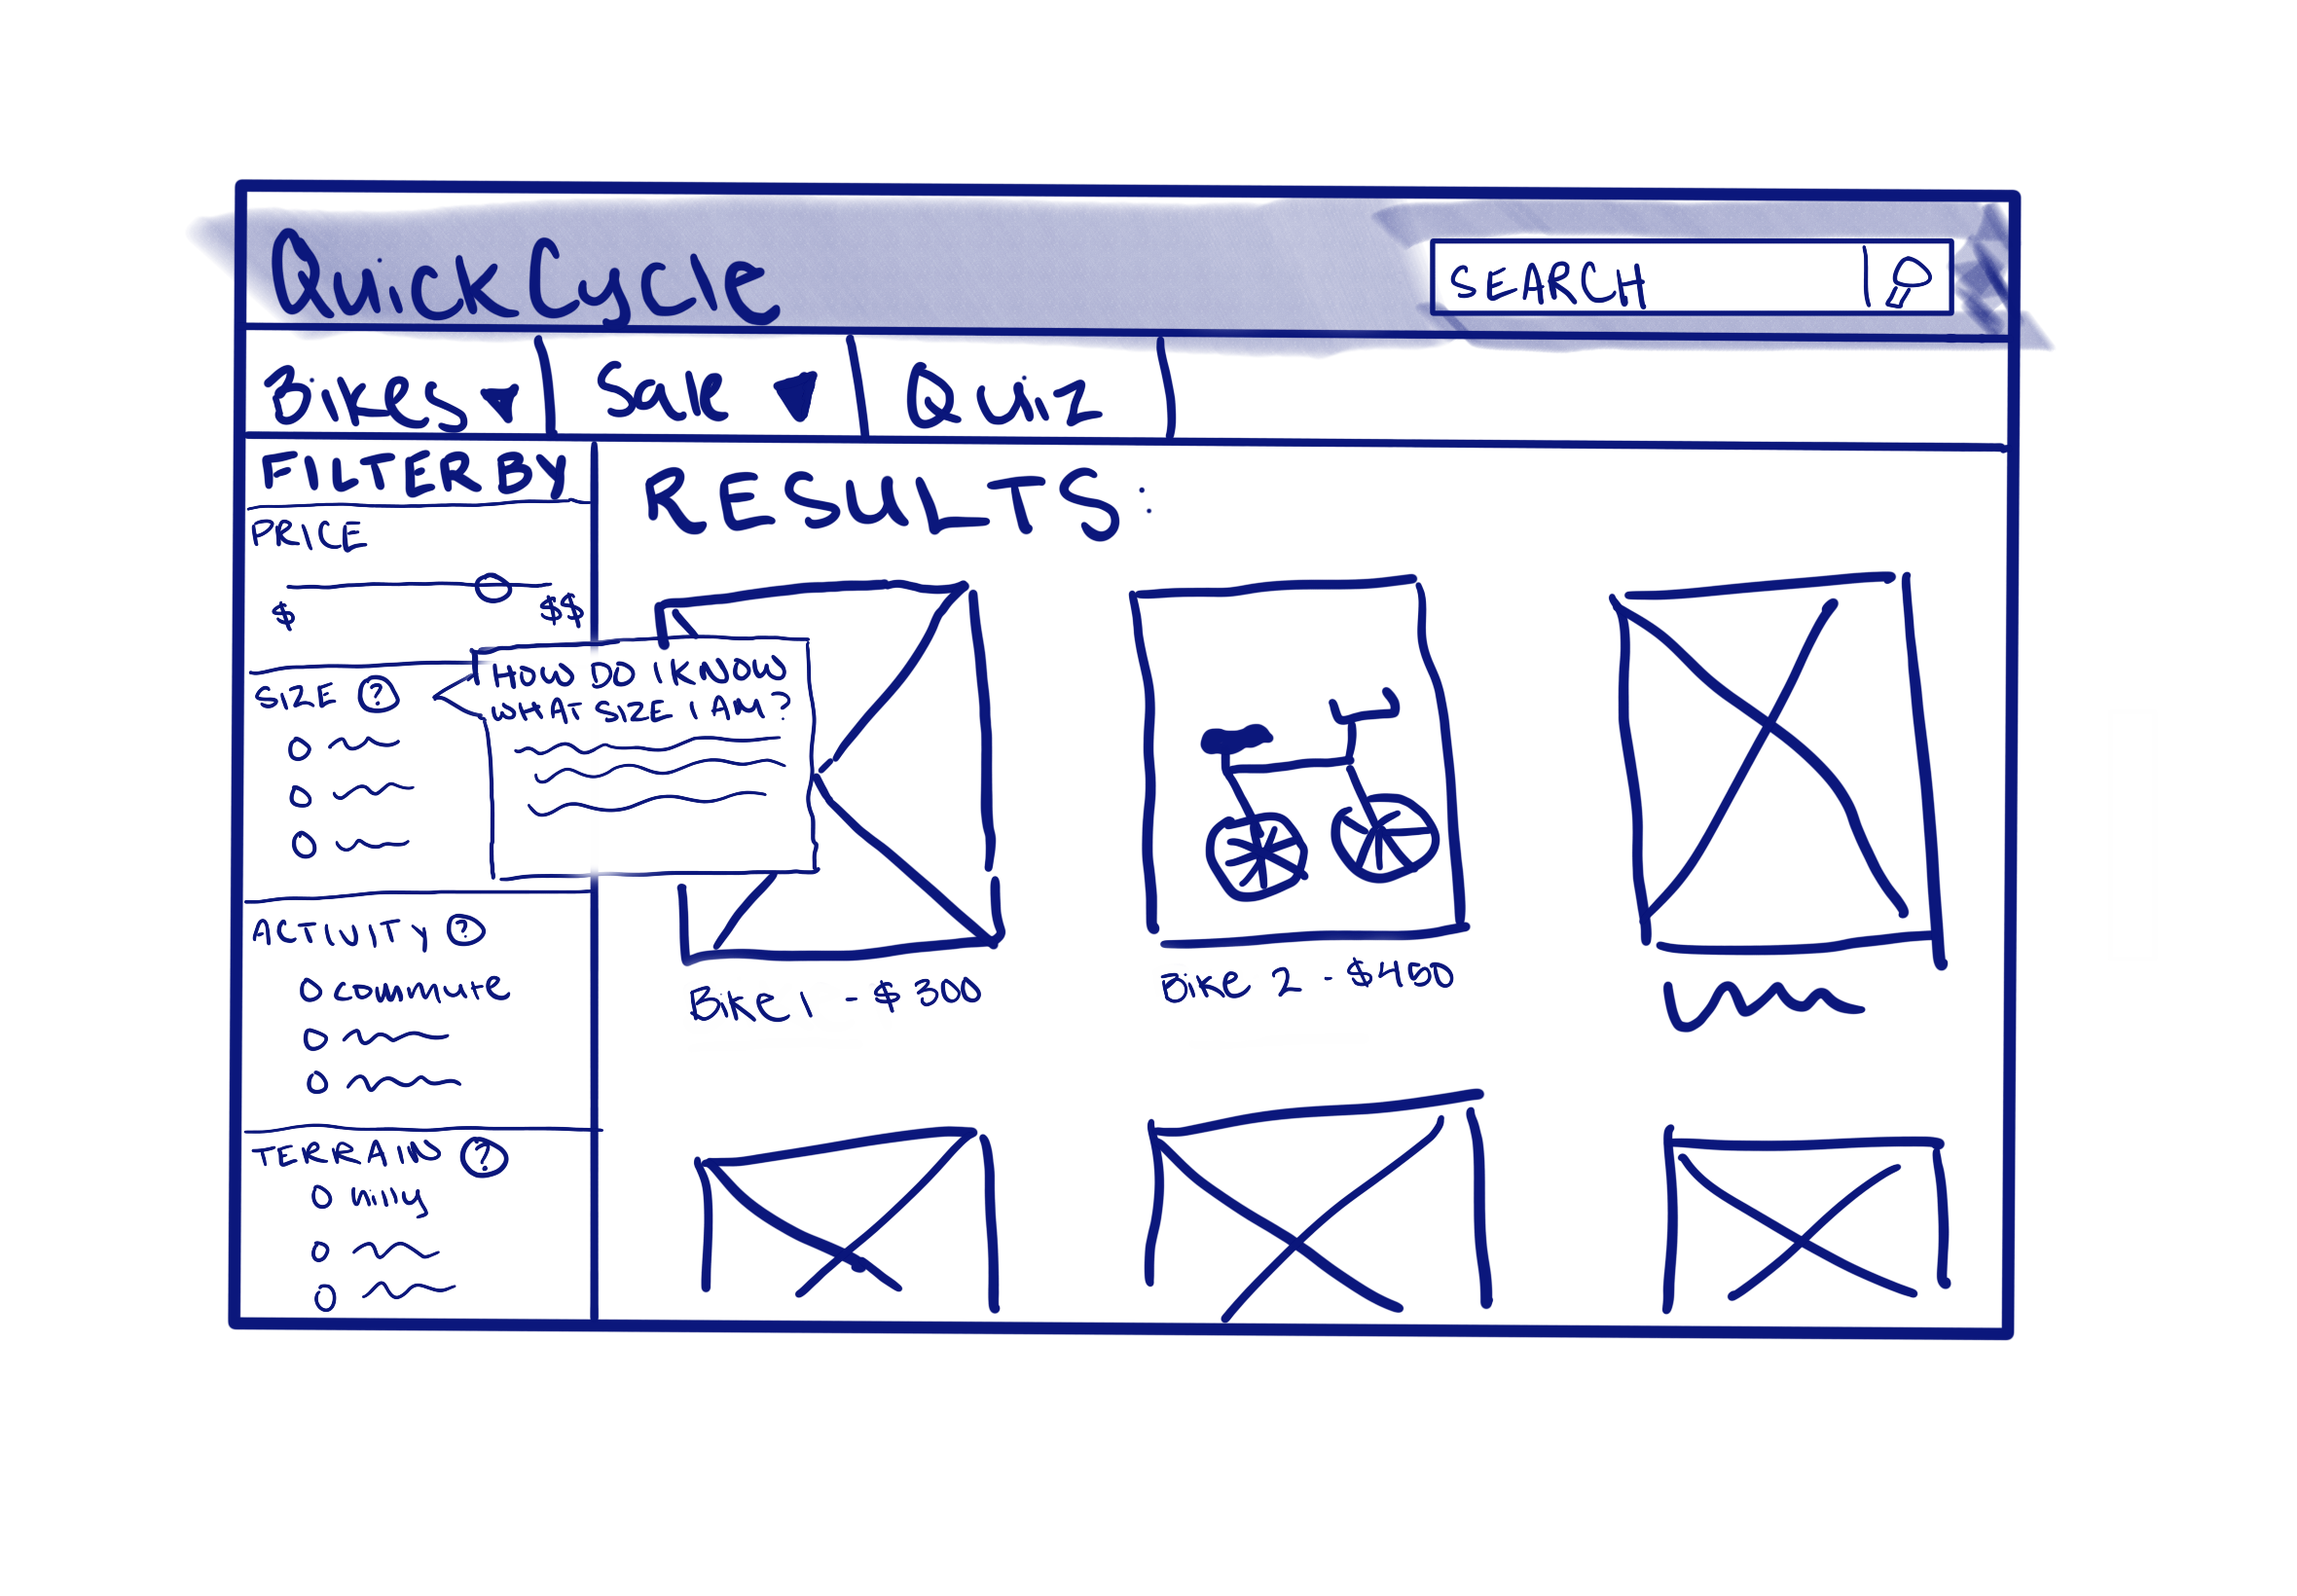 QuickCycle
SEARCH
Bikes
Sale
Quiz
FILTER BY
PRICE
$
$$
SIZE ?
HOW DO I KNOW
WHAT SIZE I AM?
ACTIVITY ?
commute
TERRAIN ?
hilly
RESULTS:
Bike 1 - $300
Bike 2 - $400